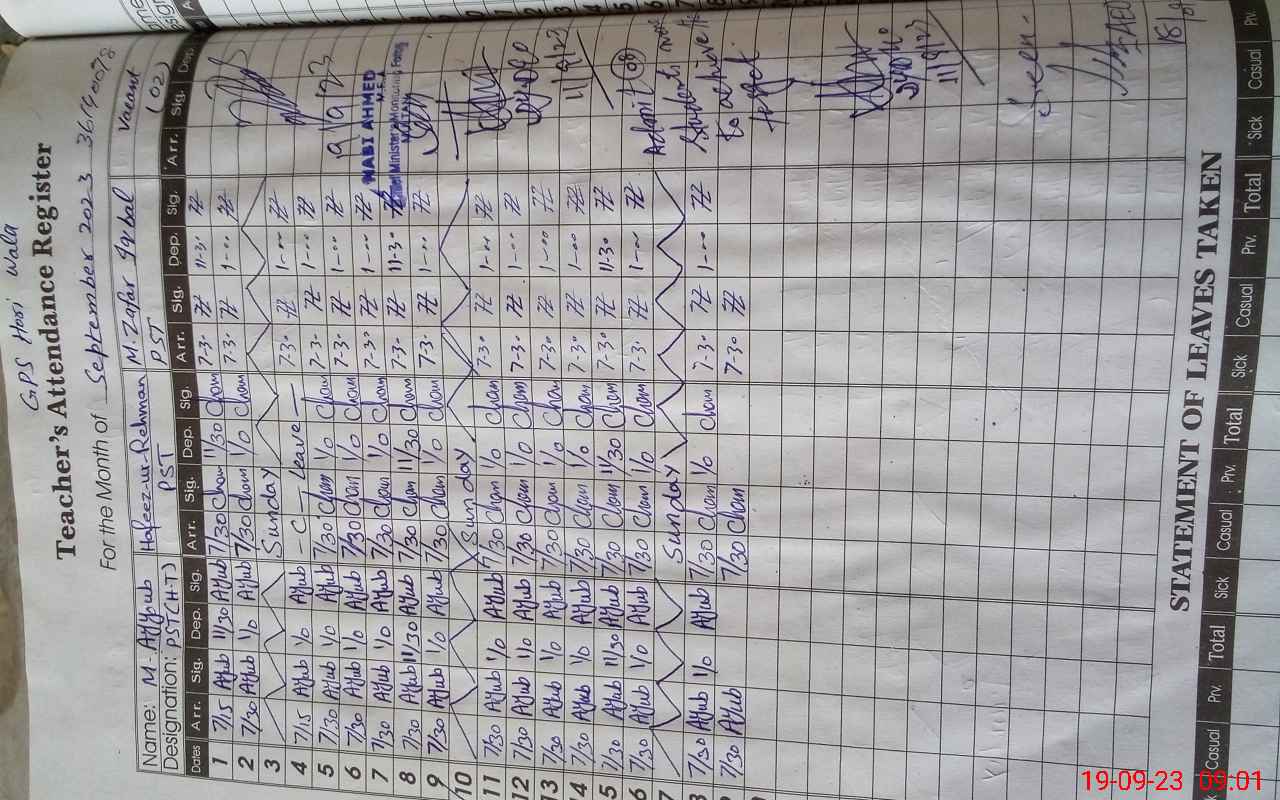 GPS Hasi Wala
Teacher's Attendance Register
For the Month of September 2023 36140078
Name: M-Ayyub Hafeez-ur-Rehman M. Zafar Iqbal Vacant
Designation: PST(H-T) PST PST (02)
Dates Arr. Sig. Dep. Sig. Arr. Sig. Dep. Sig. Arr. Sig. Dep. Sig. Arr. Sig. Dep.
1 7/15 Ayub 11/30 Ayub 7/30 Cham 11/30 Cham 7-30 ZZ 11-30 ZZ
2 7/30 Ayub 1/0 Ayub 7/30 Cham 1/0 Cham 7-30 ZZ 1-00 ZZ
3 Sunday
4 7/15 Ayub 1/0 Ayub - C - Leave - 7-30 ZZ 1-00 ZZ
5 7/30 Ayub 1/0 Ayub 7/30 Cham 1/0 Cham 7-30 ZZ 1-00 ZZ
6 7/30 Ayub 1/0 Ayub 7/30 Cham 1/0 Cham 7-30 ZZ 1-00 ZZ 9/9/23
7 7/30 Ayub 1/0 Ayub 7/30 Cham 1/0 Cham 7-30 ZZ 1-00 ZZ NABI AHMED
8 7/30 Ayub 11/30 Ayub 7/30 Cham 11/30 Cham 7-30 ZZ 11-30 ZZ Chief Ministers Monitoring Force
9 7/30 Ayub 1/0 Ayub 7/30 Cham 1/0 Cham 7-30 ZZ 1-00 ZZ
10 Sunday
11 7/30 Ayub 1/0 Ayub 7/30 Cham 1/0 Cham 7-30 ZZ 1-00 ZZ
12 7/30 Ayub 1/0 Ayub 7/30 Cham 1/0 Cham 7-30 ZZ 1-00 ZZ
13 7/30 Ayub 1/0 Ayub 7/30 Cham 1/0 Cham 7-30 ZZ 1-00 ZZ 11/9/23
14 7/30 Ayub 1/0 Ayub 7/30 Cham 1/0 Cham 7-30 ZZ 1-00 ZZ
15 7/30 Ayub 11/30 Ayub 7/30 Cham 11/30 Cham 7-30 ZZ 11-30 ZZ
6 7/30 Ayub 1/0 Ayub 7/30 Cham 1/0 Cham 7-30 ZZ 1-00 ZZ Admit 08
7 Sunday Students more
8 7/30 Ayub 1/0 Ayub 7/30 Cham 1/0 Cham 7-30 ZZ 1-00 ZZ to achieve
7/30 Ayub 7/30 Cham 7-30 ZZ target
11/9/23
Seen
AEO
18/9
STATEMENT OF LEAVES TAKEN
Casual Prv. Total Sick Casual Prv. Total Sick Casual Prv. Total Sick Casual Prv.
19-09-23 09:01